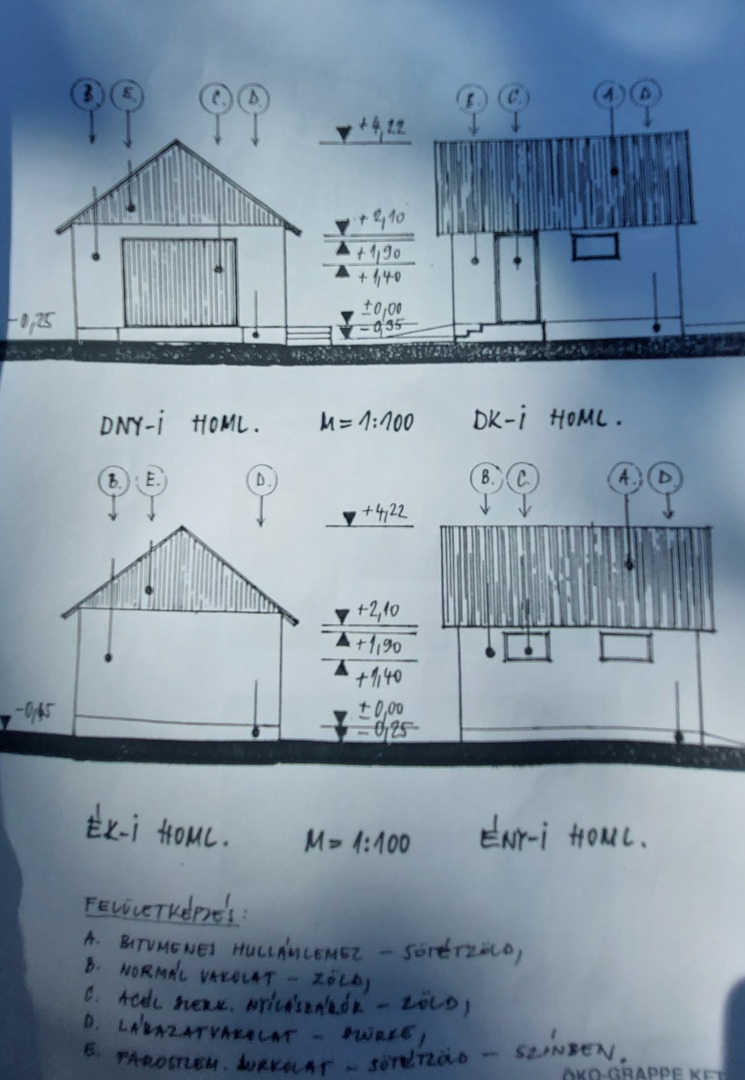 B. E. C. D. B. C. A. D.
+4,22
+2,10
+1,90
+1,40
±0,00
-0,35
DNY-i HOML. M=1:100 DK-i HOML.
B. E. D. B. C. A. D.
+4,22
+2,10
+1,90
+1,40
±0,00
-0,25
ÉK-i HOML. M=1:100 ÉNY-i HOML.
FELÜLETKÉPZÉS:
A. BITUMENES HULLÁMLEMEZ – SÖTÉTZÖLD,
B. NORMÁL VAKOLAT – ZÖLD,
C. ACÉL SZERK. NYÍLÁSZÁRÓK – ZÖLD,
D. LÁBAZATVAKOLAT – SZÜRKE,
E. FAROSTLEM. BURKOLAT – SÖTÉTZÖLD – SZÍNBEN.
ÖKO-GRAPPE KFT